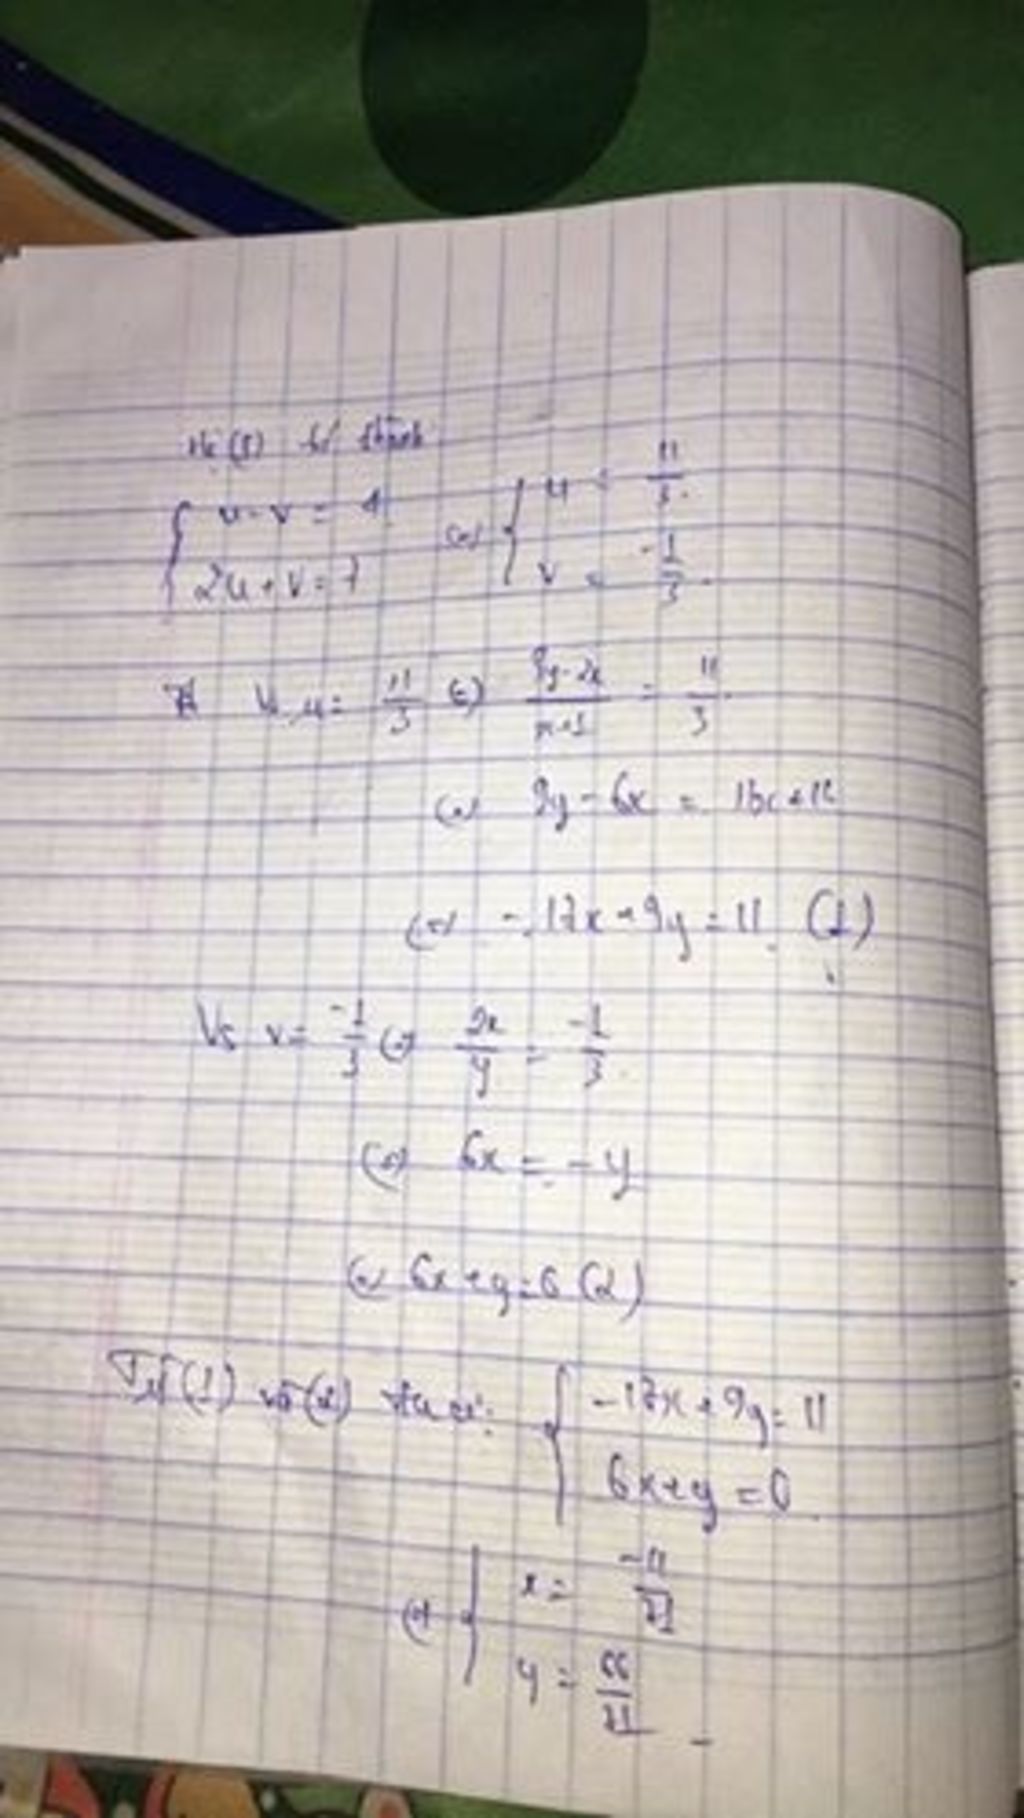 Hệ (I) trở thành
{ u - v = 4
2u + v = 7 (=) { u = 11/3
v = -1/3
Vs u = 11/3 (=) (3y-2x)/(x+1) = 11/3
(=) 9y - 6x = 11x + 11
(=) -17x + 9y = 11 (1)
Vs v = -1/3 (=) 2x/y = -1/3
(=) 6x = -y
(=) 6x + y = 0 (2)
Từ (1) và (2) ta có: { -17x + 9y = 11
6x + y = 0
(=) { x = -11/71
y = 66/71